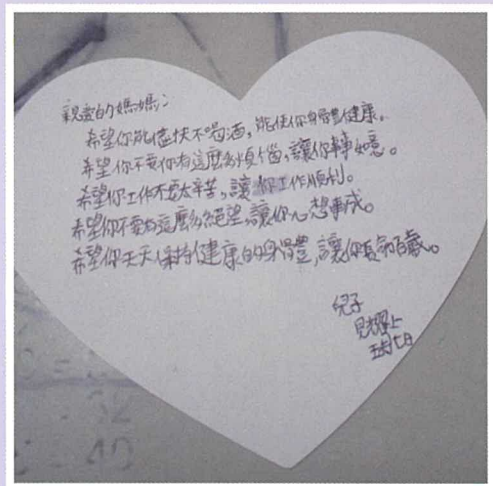 親愛的媽媽：
希望你能儘快不喝酒，能使你身體健康。
希望你不要你有這麼多煩惱，讓你事事如意。
希望你工作不要太辛苦，讓你工作順利。
希望你不要有這麼多絕望，讓你心想事成。
希望你天天保持健康的身體，讓你長命百歲。
兒子
上
32
40